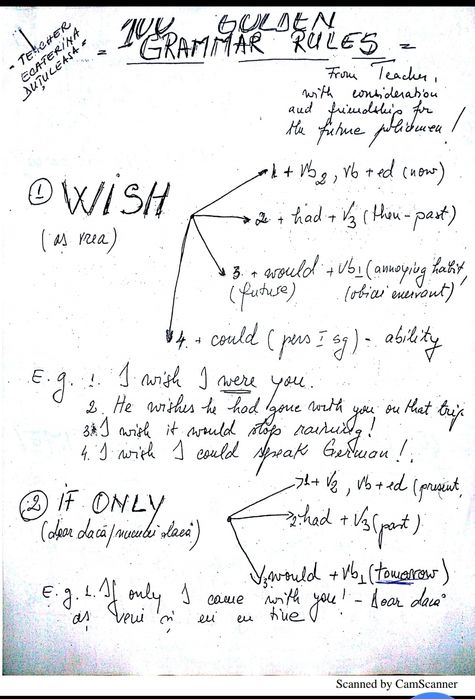 TEACHER
ECATERINA
DUȚULEASA
100 GOLDEN
= GRAMMAR RULES =
From Teacher,
with consideration
and friendship for
the future policemen!
① WISH
(aș vrea)
1 + Vb2, Vb + ed (now)
2 + had + V3 (then - past)
3. + would + Vb1 (annoying habit,
(future) (obicei enervant)
4. + could (pers I sg) - ability
E.g. 1. I wish I were you.
2. He wishes he had gone with you on that trip
3. I wish it would stop raining!
4. I wish I could speak German!
② IF ONLY
(doar dacă/numai dacă)
1 + V2, Vb + ed (present,
2. had + V3 (past)
3. would + Vb1 (tomorrow)
E.g. 1. If only I came with you! - Doar dacă
aș veni și eu cu tine
Scanned by CamScanner